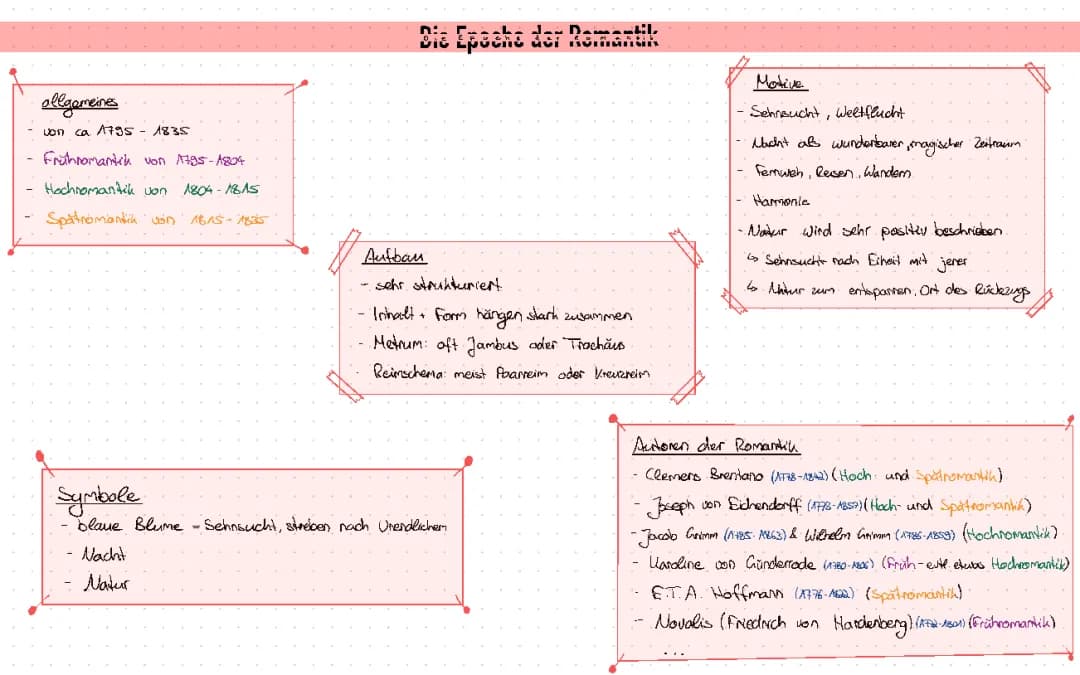 Die Epoche der Romantik
allgemeines
- von ca 1795 - 1835
- Frühromantik von 1795-1804
- Hochromantik von 1804-1815
- Spätromantik von 1815-1835
Motive
- Sehnsucht, Weltflucht
- Nacht als wunderbarer, magischer Zeitraum
- Fernweh, Reisen, Wandern
- Harmonie
- Natur wird sehr positiv beschrieben
↳ Sehnsucht nach Eiheit mit jener
↳ Natur zum entspannen, Ort des Rückzugs
Aufbau
- sehr strukturiert
- Inhalt + Form hängen stark zusammen
- Metrum: oft Jambus oder Trochäus
- Reimschema: meist Paarreim oder Kreuzreim
Symbole
- blaue Blume - Sehnsucht, streben nach Unendlichem
- Nacht
- Natur
Autoren der Romantik
- Clemens Brentano (1778-1842) (Hoch- und Spätromantik)
- Joseph von Eichendorff (1778-1857) (Hoch- und Spätromantik)
- Jacob Grimm (1785-1863) & Wilhelm Grimm (1786-1859) (Hochromantik)
- Karoline von Günderrode (1780-1806) (Früh- evtl. etwas Hochromantik)
- E.T.A. Hoffmann (1776-1822) (Spätromantik)
- Novalis (Friedrich von Hardenberg) (1772-1801) (Frühromantik)
...